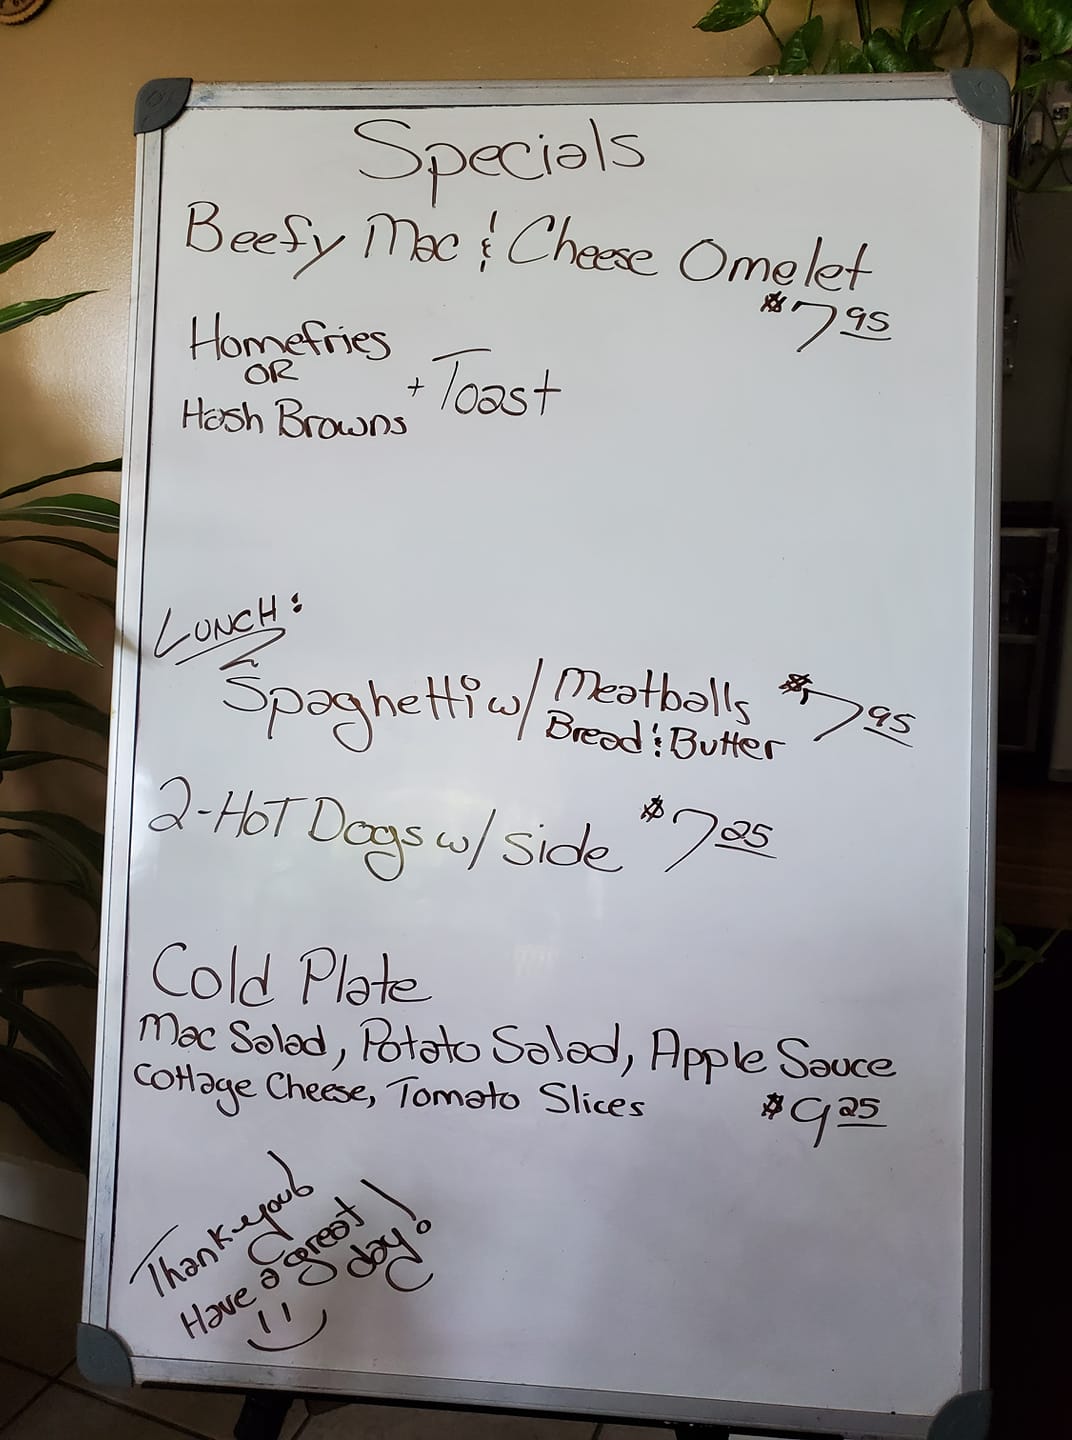 Specials
Beefy Mac & Cheese Omelet
$7 95
Homefries
OR
Hash Browns
+ Toast
LUNCH:
Spaghetti w/ Meatballs
Bread & Butter
$7 95
2-HOT Dogs w/ side $7 25
Cold Plate
Mac Salad, Potato Salad, Apple Sauce
Cottage Cheese, Tomato Slices $9 25
Thank you!
Have a great
day!